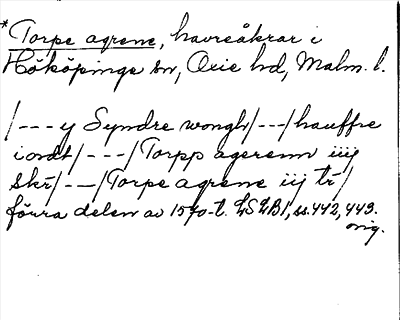 *Torpe agrene, havreåkrar i
Hököpinge sn, Oxie hd, Malm. l.
/---y Syndre wongh/---/hauffre
iordt/---/Torpp agerenn iiij
skr/---/Torpe agrene iij tr/
förra delen av 1570-t. LSLB1, ss. 442, 443.
orig.